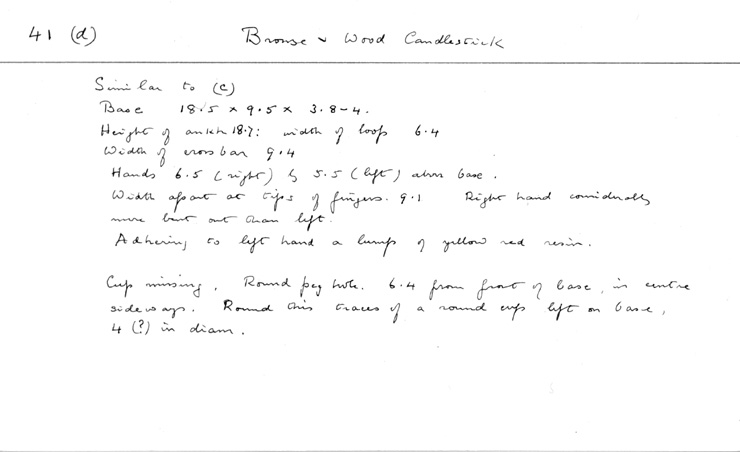 41 (d) Bronze & Wood Candlestick
Similar to (c)
Base 18.5 x 9.5 x 3.8-4.
Height of ankh 18.7: width of loop 6.4
Width of cross bar 9.4
Hands 6.5 (right) & 5.5 (left) above base.
Width apart at tips of fingers. 9.1 Right hand considerably
more bent out than left.
Adhering to left hand a lump of yellow red resin.
Cup missing. Round peg hole. 6.4 from front of base, in centre
sideways. Round this traces of a round cup left on base,
4 (?) in diam.